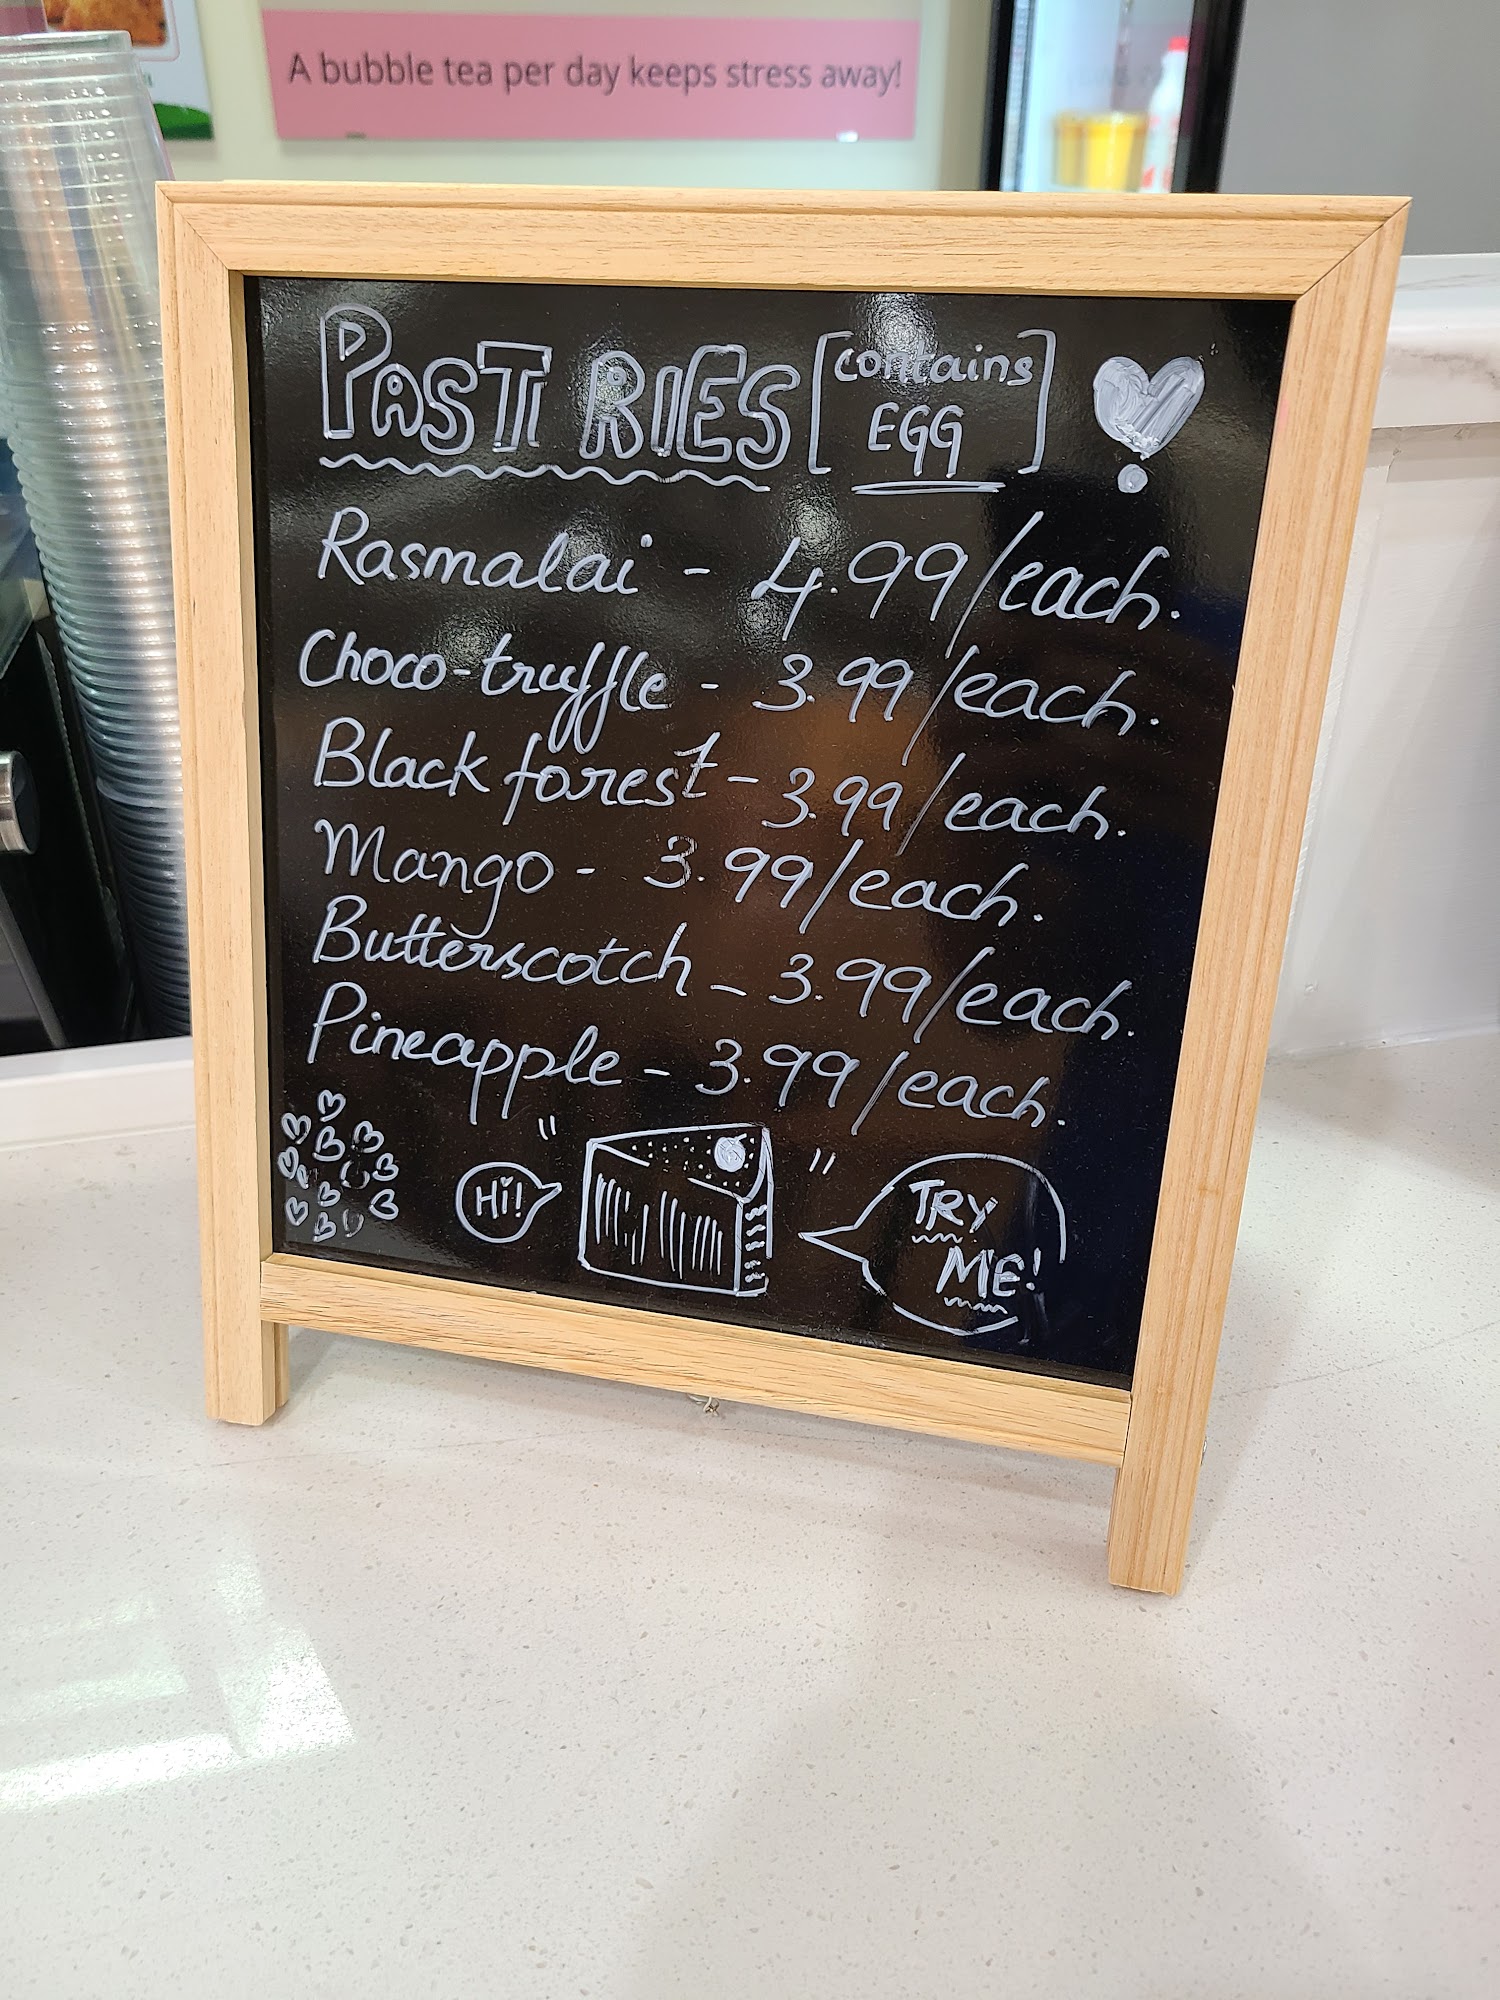 A bubble tea per day keeps stress away!
PASTRIES [contains EGG]
Rasmalai - 4.99/each.
Choco-truffle - 3.99/each.
Black forest - 3.99/each.
Mango - 3.99/each.
Butterscotch - 3.99/each.
Pineapple - 3.99/each.
Hi!
TRY
ME!